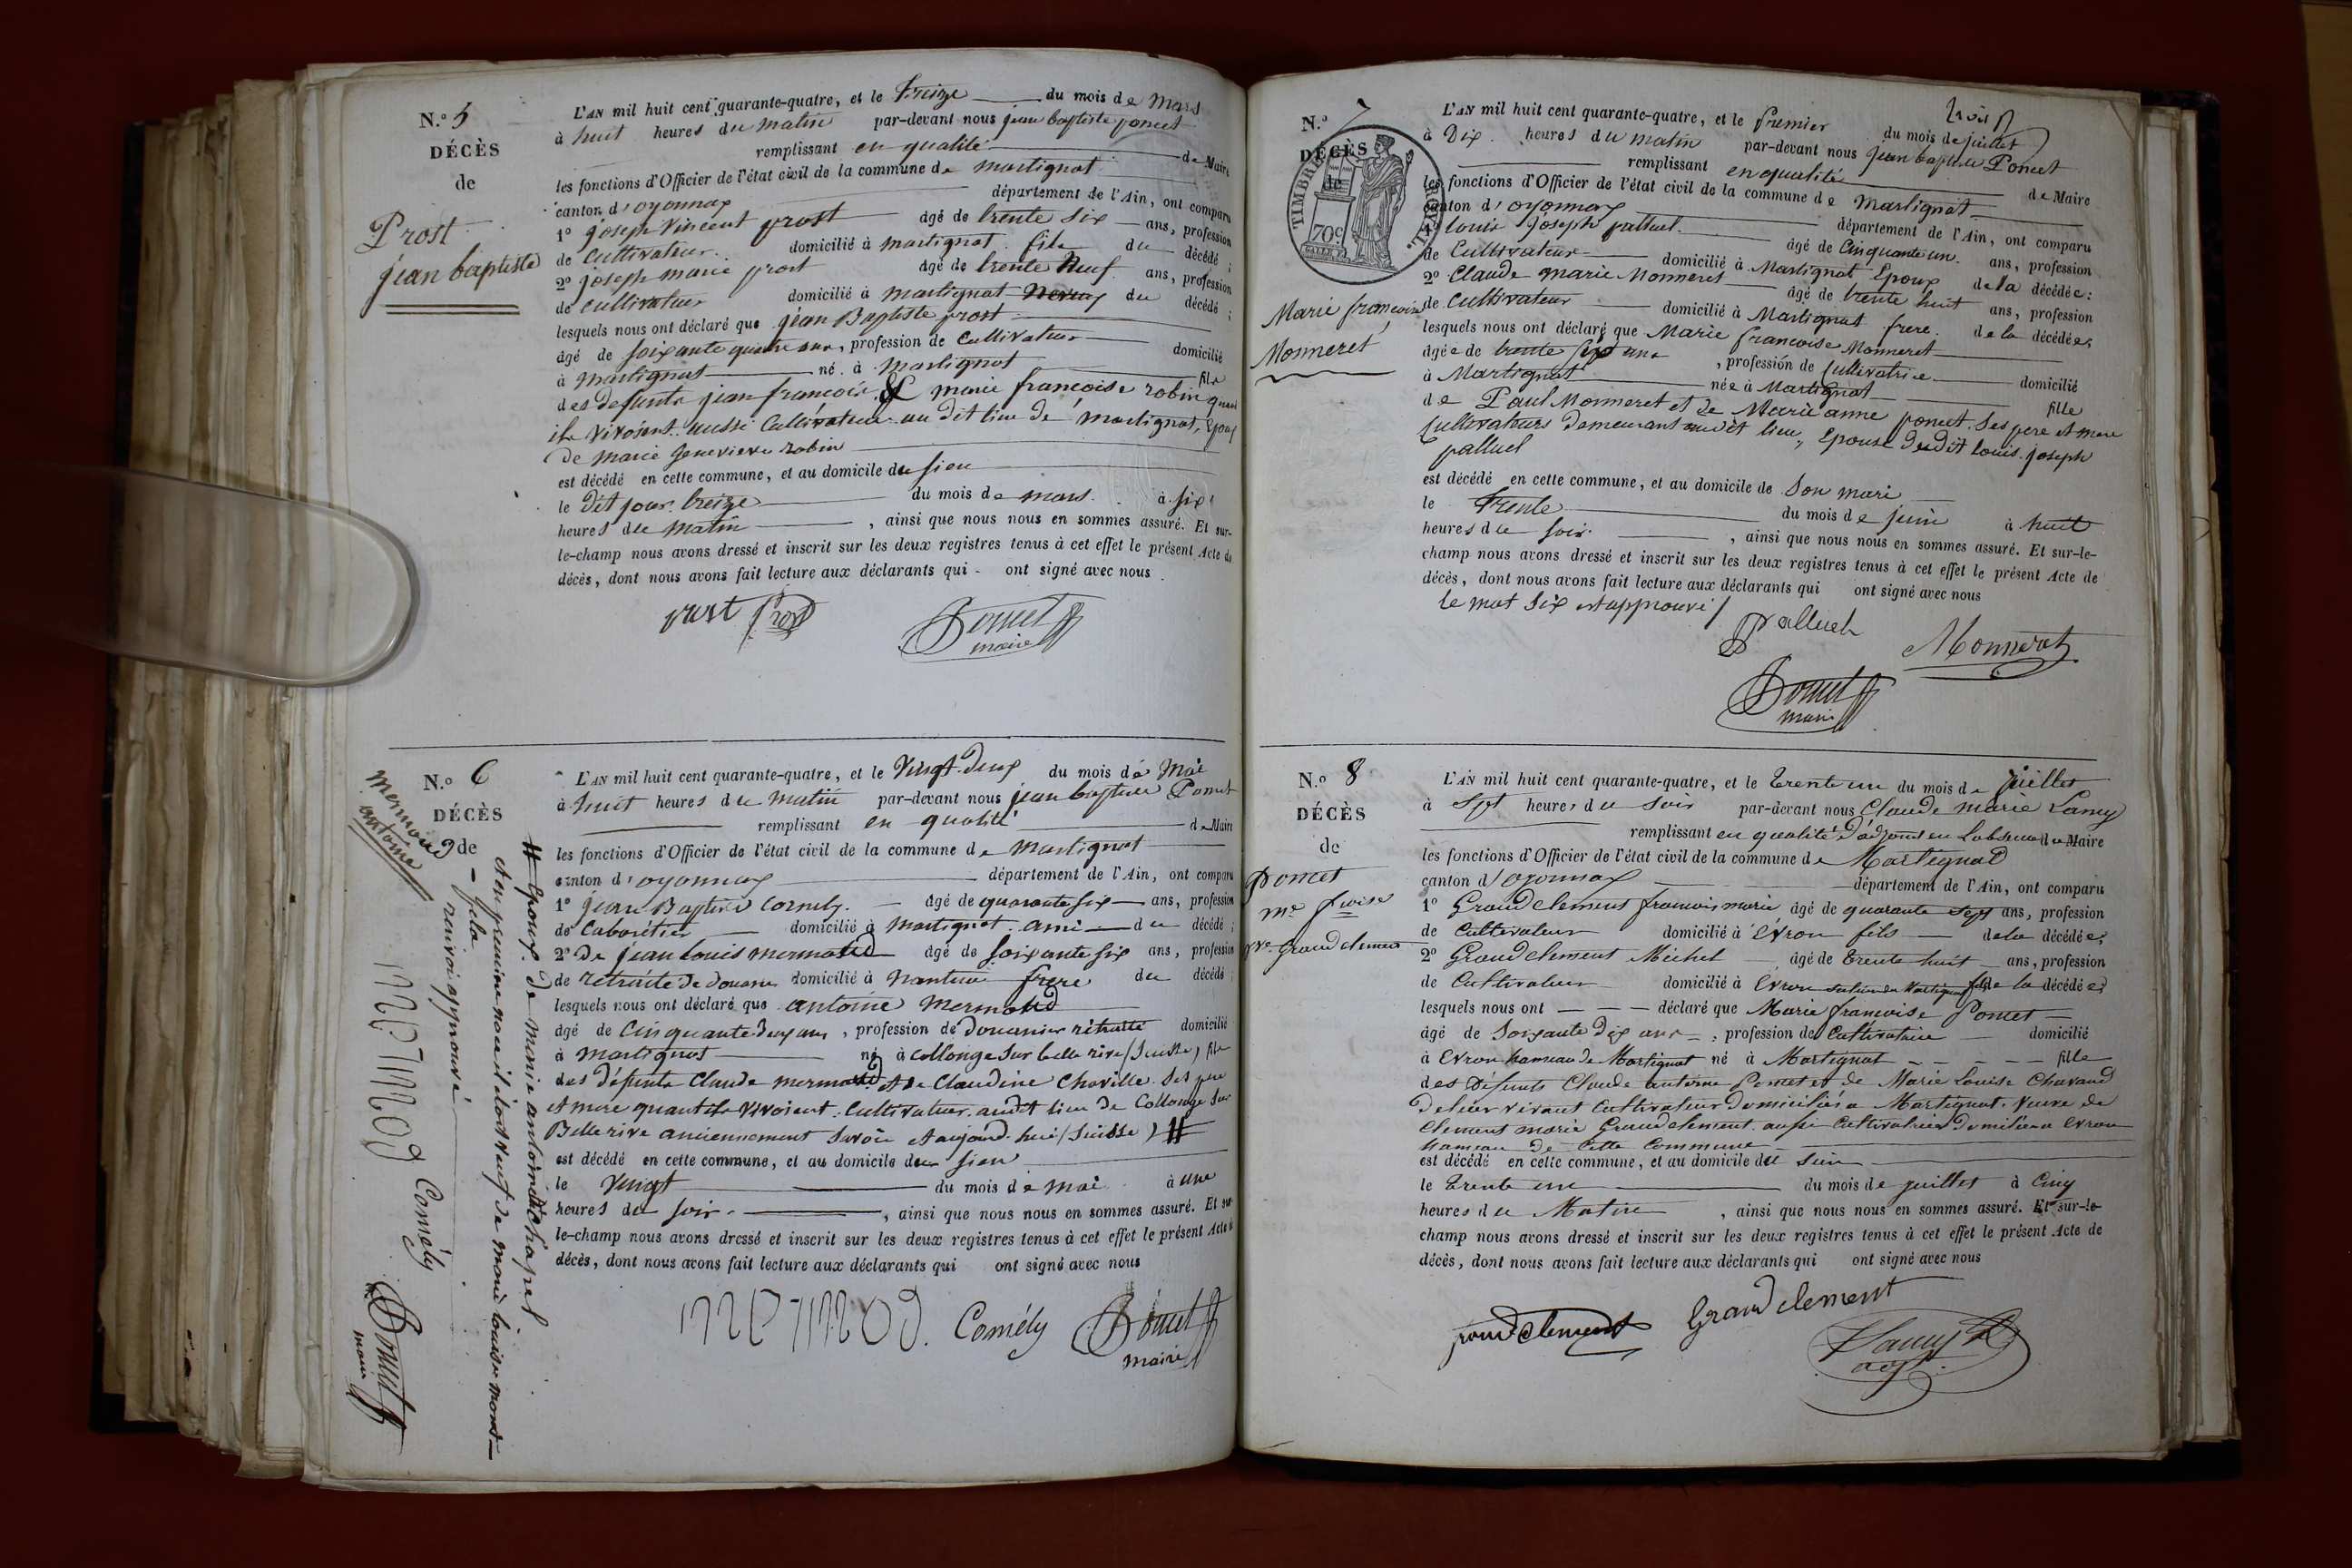 N.º 5
DÉCÈS
de
Prost
jean baptiste
L'AN mil huit cent quarante-quatre, et le treize du mois de Mars
à huit heures du matin par-devant nous jean baptiste poncet
remplissant en qualité de Maire
les fonctions d'Officier de l'état civil de la commune de martignat
canton d'oyonnax département de l'Ain, ont comparu
1º joseph Vincent prost âgé de trente six ans, profession
de Cultivateur domicilié à martignat fils du décédé ;
2º joseph marie prost âgé de trente Neuf ans, profession
de cultivateur domicilié à martignat Neveu du décédé ;
lesquels nous ont déclaré que jean Baptiste prost
âgé de soixante quatre ans, profession de Cultivateur domicilié
à Martignat né à Martignat fils
des defunts jean francois & marie francoise robin quand
ils vivoient aussi Cultivateurs au dit lieu de martignat, Epoux
de marie genevieve robin
est décédé en cette commune, et au domicile du sien
le dit jour treize du mois de mars à six
heures du matin, ainsi que nous nous en sommes assuré. Et sur-
le-champ nous avons dressé et inscrit sur les deux registres tenus à cet effet le présent Acte de
décès, dont nous avons fait lecture aux déclarants qui ont signé avec nous
prost Prost Poncet
maire
N.º 6
DÉCÈS
de
mermoud
antoine
L'AN mil huit cent quarante-quatre, et le Vingt-deux du mois de Mai
à huit heures du matin par-devant nous jean baptiste Poncet
remplissant en qualité de Maire
les fonctions d'Officier de l'état civil de la commune de martignat
canton d'oyonnax département de l'Ain, ont comparu
1º jean Baptiste Comely âgé de quarante six ans, profession
de Cabaretier domicilié à martignat ami du décédé ;
2º De jean louis mermoud âgé de soixante six ans, profession
de retraite de douane domicilié à nantua frere du décédé ;
lesquels nous ont déclaré que antoine mermoud
âgé de Cinquante deux ans, profession de douanier retraité domicilié
à martignat né à collonge sur belle rive (Suisse) fils
des défunts Claude mermoud et de Claudine Choville ses pere
et mere quant ils vivoient Cultivateurs audit lieu de Collonge sur
Belle rive anciennement Savoie et aujourd-hui (Suisse) #
est décédé en cette commune, et au domicile du sien
le vingt du mois de mai à une
heures du soir, ainsi que nous nous en sommes assuré. Et sur
le-champ nous avons dressé et inscrit sur les deux registres tenus à cet effet le présent Acte de
décès, dont nous avons fait lecture aux déclarants qui ont signé avec nous
mermod. Comély Poncet
maire
# Epoux de marie antoinette chapel
et en premiere noce il étoit veuf de marie louise mont-
-fela
renvoi approuvé
mermod Comély Poncet
maire
N.º 7
DÉCÈS
de
TIMBRE ROYAL
70 c
Marie francoise
Monneret
L'AN mil huit cent quarante-quatre, et le premier du mois de juillet
à Dix heures du matin par-devant nous jean baptiste Poncet
remplissant en qualité de Maire
les fonctions d'Officier de l'état civil de la commune de Martignat
canton d'oyonnax département de l'Ain, ont comparu
1º louis joseph palluel âgé de Cinquante un ans, profession
de Cultivateur domicilié à Martignat Epoux de la décédée ;
2º Claude marie Monneret âgé de trente huit ans, profession
de Cultivateur domicilié à Martignat frere de la décédée ;
lesquels nous ont déclaré que Marie francoise Monneret
âgée de trente six ans, profession de Cultivatrice domicilié
à Martignat née à Martignat fille
de Paul Monneret et de Marie anne poncet ses pere et mere
Cultivateurs demeurant audit lieu, Epouse dudit louis joseph
palluel
est décédé en cette commune, et au domicile de Son mari
le Trente du mois de juin à huit
heures du soir, ainsi que nous nous en sommes assuré. Et sur-le-
champ nous avons dressé et inscrit sur les deux registres tenus à cet effet le présent Acte de
décès, dont nous avons fait lecture aux déclarants qui ont signé avec nous
le mot six est approuvé
Palluel Monneret
Poncet
maire
N.º 8
DÉCÈS
de
Poncet
me fcoise
ve Grandclement
L'AN mil huit cent quarante-quatre, et le trente un du mois de juillet
à sept heures du soir par-devant nous Claude marie Lancy
remplissant en qualité d'adjoint en l'absence du Maire
les fonctions d'Officier de l'état civil de la commune de Martignat
canton d'oyonnax département de l'Ain, ont comparu
1º Grandclement francois marie âgé de quarante sept ans, profession
de Cultivateur domicilié à Evron fils de la décédée ;
2º Grandclement Michel âgé de trente huit ans, profession
de Cultivateur domicilié à Evron fils de la décédée ;
lesquels nous ont déclaré que Marie francoise Poncet
âgé de Soixante dix ans, profession de Cultivatrice domicilié
à Evron hameau de Martignat né à Martignat fille
des Défunts Claude antoine Poncet et de Marie louise Chavand
de leur vivant Cultivateurs domiciliés a Martignat. Veuve de
Clement marie Grandclement aussi Cultivateur domicilié a Evron
hameau de cette Commune
est décédé en cette commune, et au domicile du sien
le trente un du mois de juillet à Cinq
heures du Matin, ainsi que nous nous en sommes assuré. Et sur-le-
champ nous avons dressé et inscrit sur les deux registres tenus à cet effet le présent Acte de
décès, dont nous avons fait lecture aux déclarants qui ont signé avec nous
grandclement Grandclement
Lancy
adjt